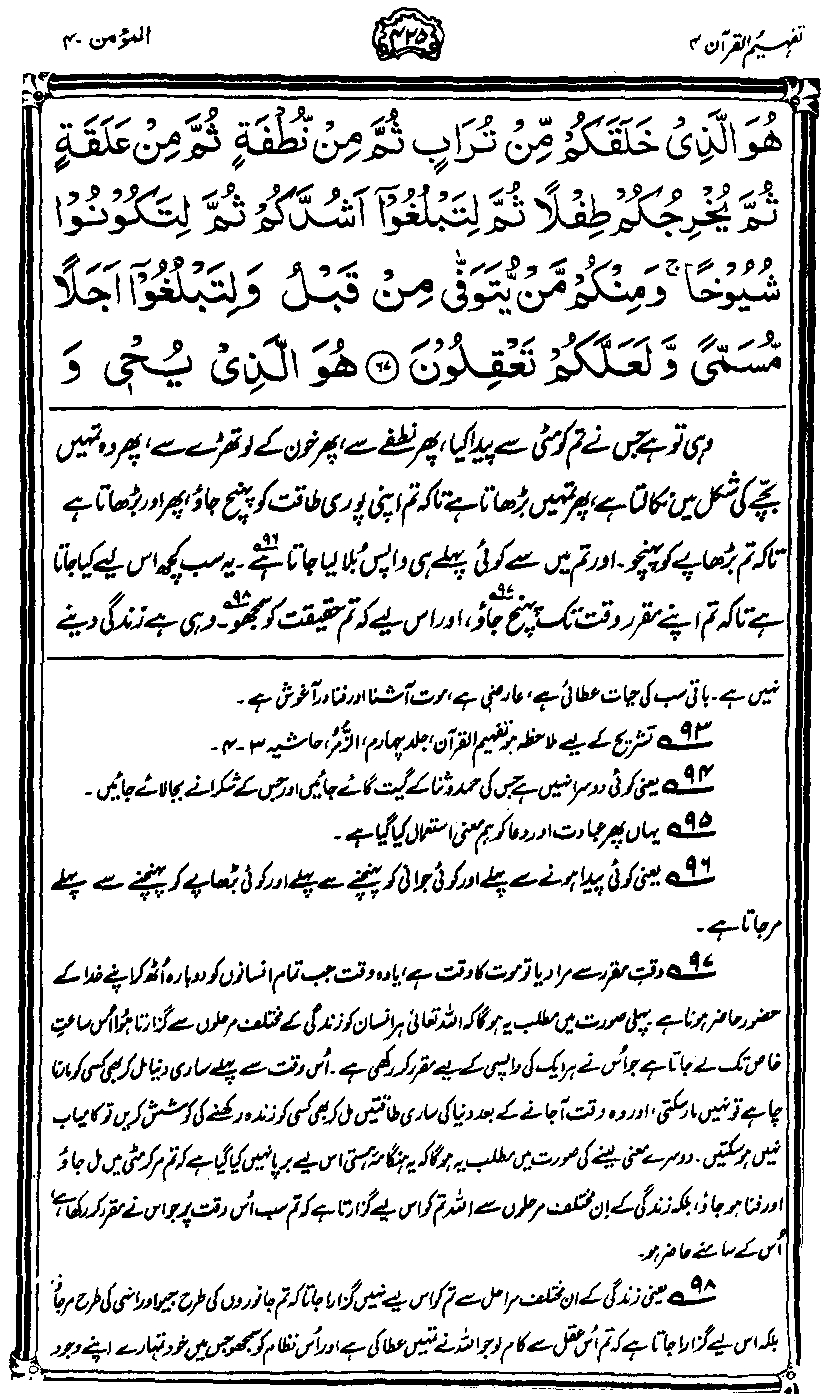 تفہیم القرآن ۴
۴۲۵
المؤمن ۴۰
هُوَ الَّذِیْ خَلَقَكُمْ مِّنْ تُرَابٍ ثُمَّ مِنْ نُّطْفَةٍ ثُمَّ مِنْ عَلَقَةٍ
ثُمَّ یُخْرِجُكُمْ طِفْلًا ثُمَّ لِتَبْلُغُوْۤا اَشُدَّكُمْ ثُمَّ لِتَكُوْنُوْا
شُیُوْخًا ۚ وَمِنْكُمْ مَّنْ یُّتَوَفّٰی مِنْ قَبْلُ وَلِتَبْلُغُوْۤا اَجَلًا
مُّسَمًّی وَّلَعَلَّكُمْ تَعْقِلُوْنَ ﴿۶۷﴾ هُوَ الَّذِیْ یُحْیٖ وَ
وہی تو ہے جس نے تم کو مٹی سے پیدا کیا، پھر نطفے سے، پھر خون کے لوتھڑے سے، پھر وہ تمہیں
بچے کی شکل میں نکالتا ہے، پھر تمہیں بڑھاتا ہے تاکہ تم اپنی پوری طاقت کو پہنچ جاؤ، پھر اور بڑھاتا ہے
تاکہ تم بڑھاپے کو پہنچو۔ اور تم میں سے کوئی پہلے ہی واپس بُلا لیا جاتا ہے۹۶۔ یہ سب کچھ اس لیے کیا جاتا
ہے تاکہ تم اپنے مقرر وقت تک پہنچ جاؤ۹۷، اور اس لیے کہ تم حقیقت کو سمجھو۹۸۔ وہی ہے زندگی دینے
نہیں ہے۔ باقی سب کی حیات عطائی ہے، عارضی ہے، موت آشنا اور فنا در آغوش ہے۔
۹۳ تشریح کے لیے ملاحظہ ہو تفہیم القرآن، جلد چہارم، الزُّمَر، حاشیہ ۳-۴۔
۹۴ یعنی کوئی دوسرا نہیں ہے جس کی حمد و ثنا کے گیت گائے جائیں اور جس کے شکرانے بجا لائے جائیں۔
۹۵ یہاں پھر عبادت اور دعا کو ہم معنی استعمال کیا گیا ہے۔
۹۶ یعنی کوئی پیدا ہونے سے پہلے اور کوئی جوانی کو پہنچنے سے پہلے اور کوئی بڑھاپے کو پہنچنے سے پہلے
مر جاتا ہے۔
۹۷ وقتِ مقرر سے مراد یا تو موت کا وقت ہے، یا وہ وقت جب تمام انسانوں کو دوبارہ اُٹھ کر اپنے خدا کے
حضور حاضر ہونا ہے۔ پہلی صورت میں مطلب یہ ہوگا کہ اللہ تعالیٰ ہر انسان کو زندگی کے مختلف مرحلوں سے گزارتا ہُوا اُس ساعتِ
خاص تک لے جاتا ہے جو اُس نے ہر ایک کی واپسی کے لیے مقرر کر رکھی ہے۔ اُس وقت سے پہلے ساری دنیا مل کر بھی کسی کو مارنا
چاہے تو نہیں مار سکتی، اور وہ وقت آجانے کے بعد دنیا کی ساری طاقتیں مل کر بھی کسی کو زندہ رکھنے کی کوشش کریں تو کامیاب
نہیں ہو سکتیں۔ دوسرے معنی لینے کی صورت میں مطلب یہ ہوگا کہ یہ ہنگامۂ ہستی اس لیے برپا نہیں کیا گیا ہے کہ تم مر کر مٹی میں مل جاؤ
اور فنا ہو جاؤ، بلکہ زندگی کے اِن مختلف مرحلوں سے اللہ تم کو اس لیے گزارتا ہے کہ تم سب اُس وقت پر جو اس نے مقرر کر رکھا ہے،
اُس کے سامنے حاضر ہو۔
۹۸ یعنی زندگی کے ان مختلف مراحل سے تم کو اس لیے نہیں گزارا جاتا کہ تم جانوروں کی طرح جیو اور انہی کی طرح مر جاؤ،
بلکہ اس لیے گزارا جاتا ہے کہ تم اُس عقل سے کام لو جو اللہ نے تمہیں عطا کی ہے اور اُس نظام کو سمجھو جس میں خود تمہارے اپنے وجود